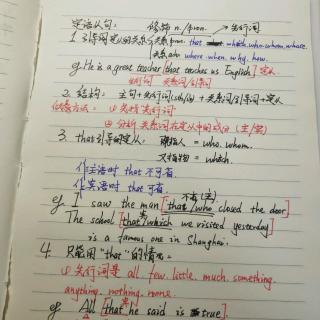 定语从句： 修饰 n./pron. → 先行词
1. 引导定从的关系 关系pron. that which. who. whom. whose.
关系adv. where. when. why. how.
eg. He is a great teacher [that teaches us English] 定从
先行词 关系词/引导词
2. 结构： 主句+先行词(sub/o)+关系词/引导词+定从
做题方法： ① 先找先行词
② 分析关系词在定从中的成分 (主/宾)
3. that引导的定从： 既指人 = who. whom.
又指物 = which.
作主语时 that 不可省
作宾语时 that 可省.
eg. I saw the man [that/who closed the door]
不省(主)
The school [that/which we visited yesterday]
宾
is a famous one in Shanghai.
4. 只能用"that"的情况：
① 先行词是 all. few. little. much. something.
anything. nothing. none.
eg. All [that he said is true].